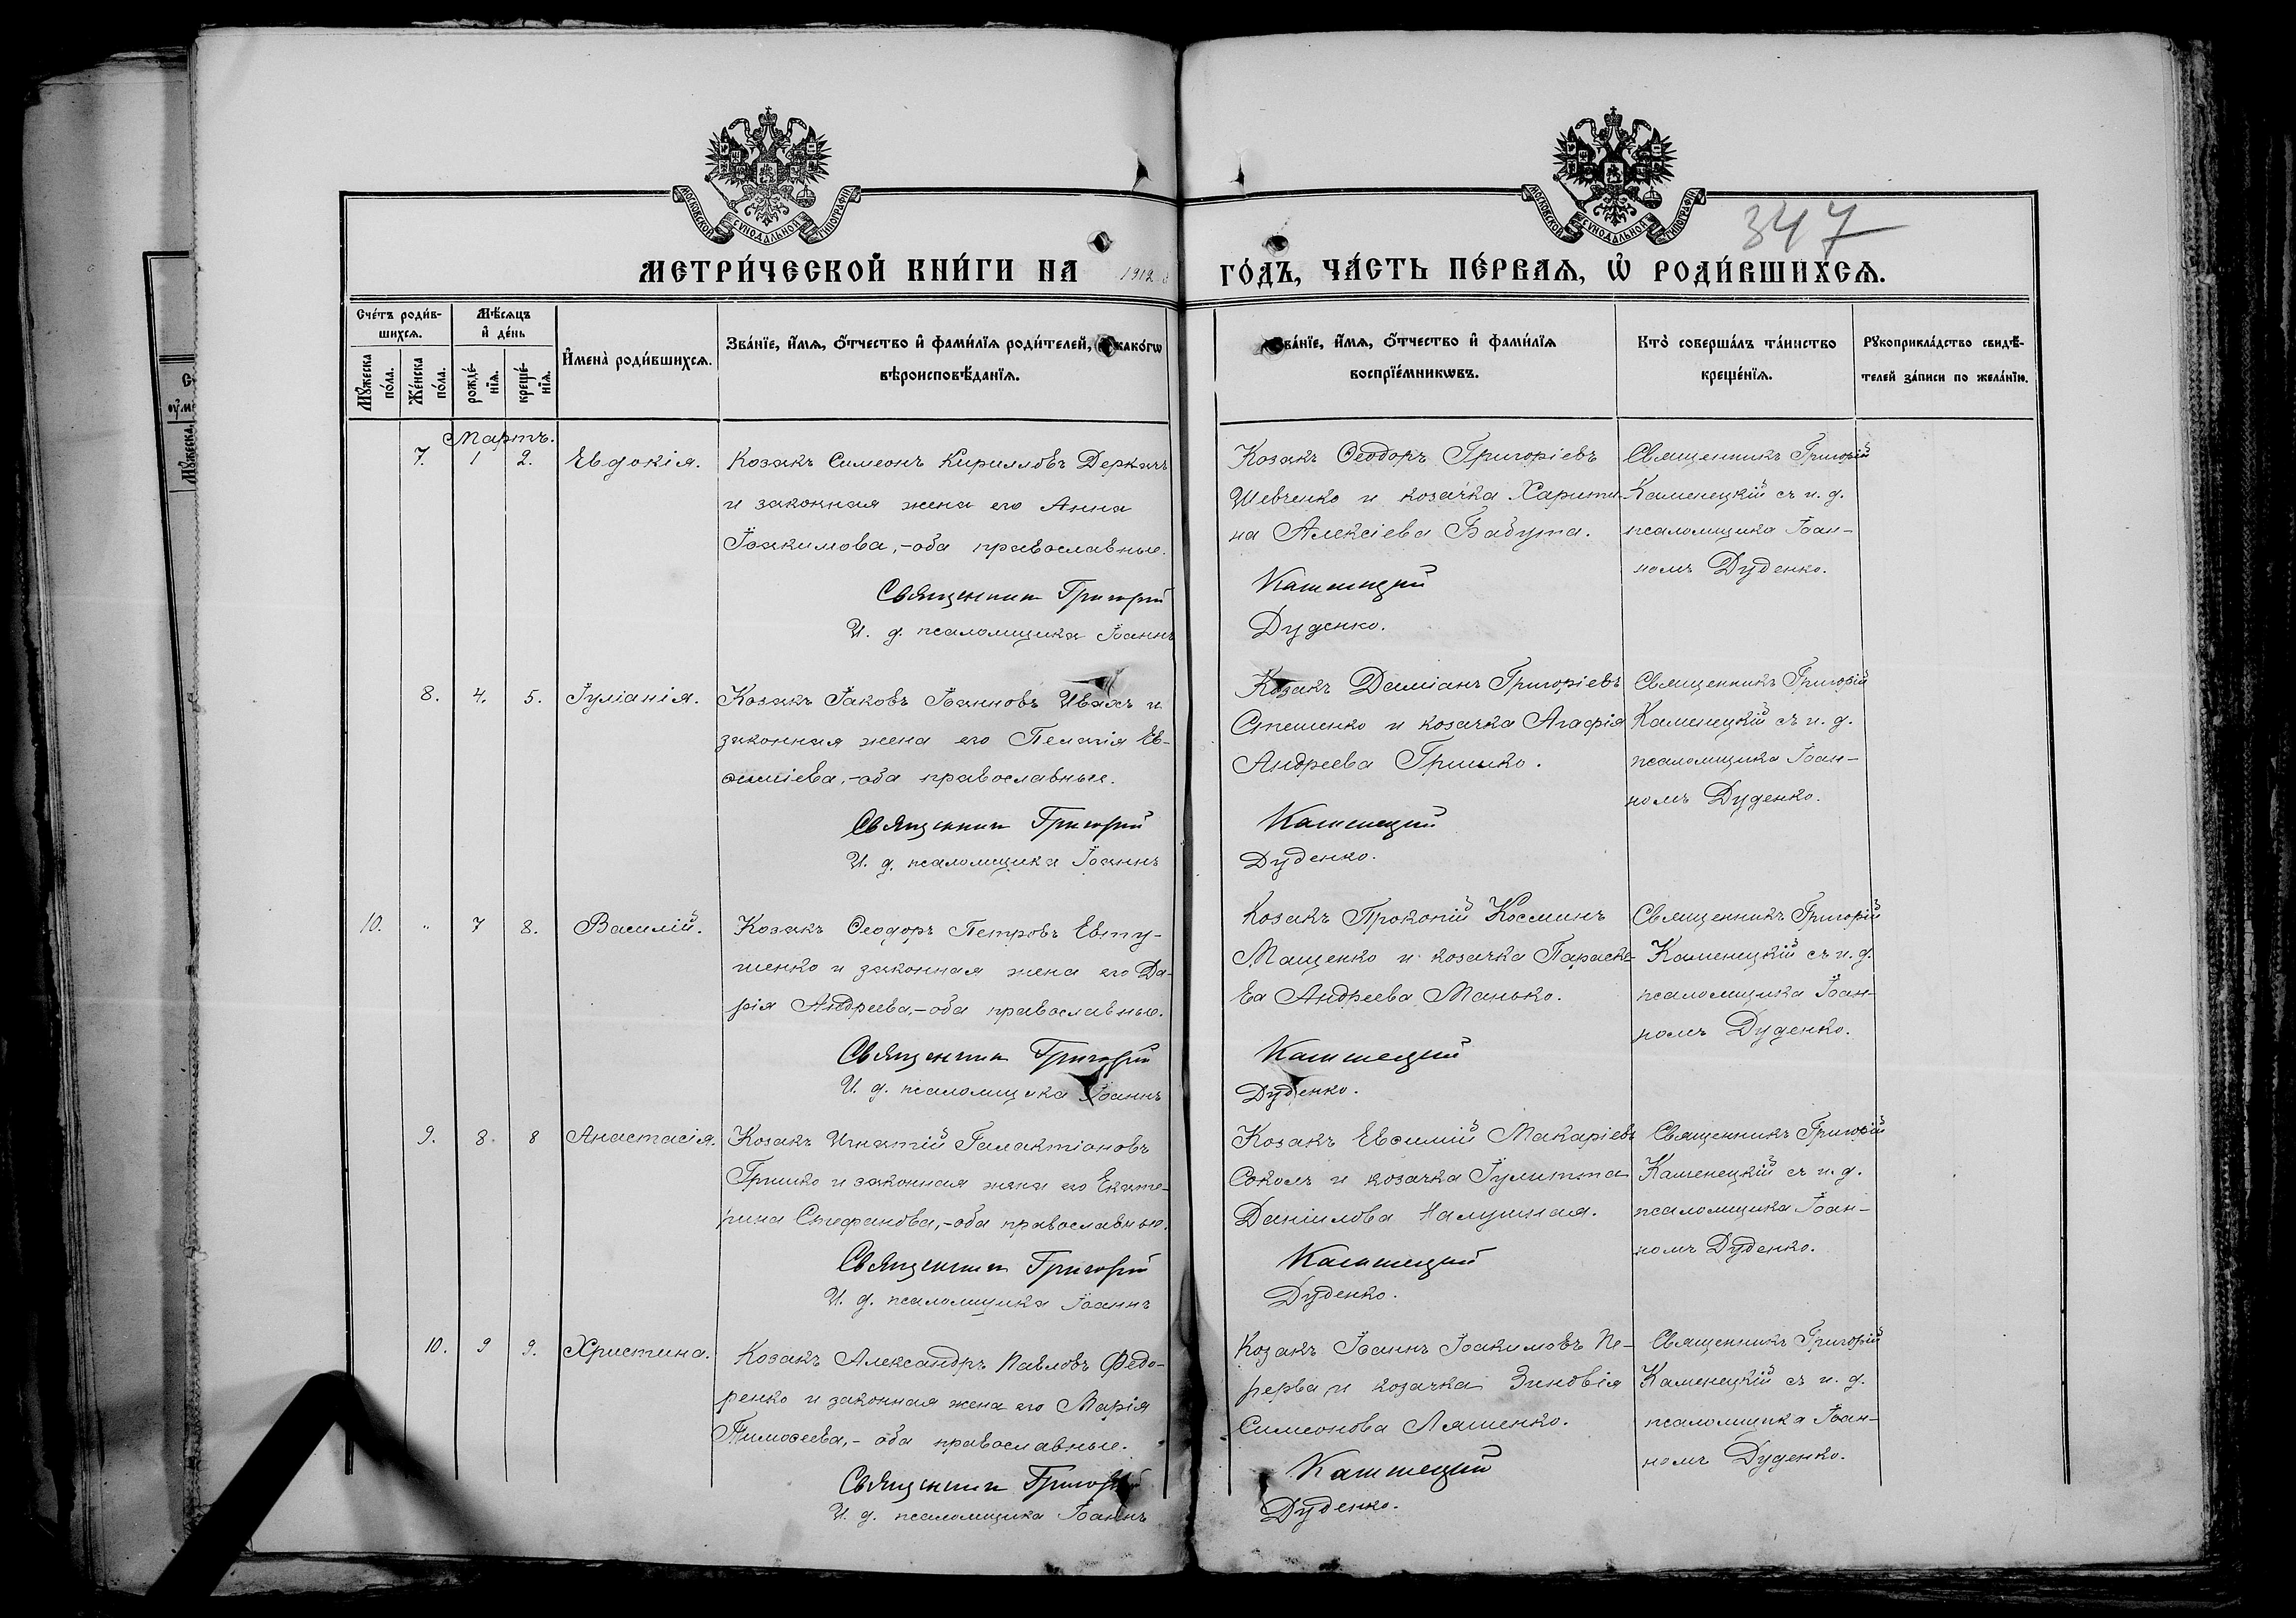 МОСКОВСКОЙ СѴНОДАЛЬНОЙ ТИПОГРАФІИ
МОСКОВСКОЙ СѴНОДАЛЬНОЙ ТИПОГРАФІИ
347
МЕТРИ́ЧЕСКОЙ КНИ́ГИ НА 1912
ГО́ДЪ, ЧА́СТЬ ПЕ́РВАЯ, Ѡ РОДИ́ВШИХСЯ.
Сче́тъ роди́в-
шихся.
Мѣ́сяцъ
и де́нь
Мꙋ́жеска по́ла.
Же́нска по́ла.
рожде́-нїя.
креще́-нїя.
И҆мена̀ роди́вшихся.
Зва́нїе, и҆́мя, ѻ҆́тчество и҆ фами́лїя роди́телей, и҆ како́гѡ
вѣроисповѣ́данїя.
Зва́нїе, и҆́мя, ѻ҆́тчество и҆ фами́лїя
воспрїе́мникѡвъ.
Кто̀ соверша́лъ та́инство
креще́нїя.
Рꙋкоприкла́дство свидѣ́-
телей за́писи по жела́нїю.
Мартъ.
7. 1 2. Евдокія.
Козакъ Симеонъ Кирилловъ Деркачъ
и законная жена его Анна
Іоакимова,-оба православные.
Священник Григорий
И. д. псаломщика Іоаннъ
Козакъ Ѳеодоръ Григоріевъ
Шевченко и козачка Харити-
на Алексіева Бабута.
Каменецкий
Дуденко.
Священникъ Григорій
Каменецкій съ и. д.
псаломщика Іоан-
номъ Дуденко.
8. 4. 5. Іуліанія.
Козакъ Іаковъ Іоанновъ Ивахъ и
законная жена его Пелагія Ев-
ѳиміева,-оба православные.
Священник Григорий
И. д. псаломщика Іоаннъ
Козакъ Даміанъ Григоріевъ
Стешенко и козачка Агафія
Андреева Гришко.
Каменецкий
Дуденко.
Священникъ Григорій
Каменецкій съ и. д.
псаломщика Іоан-
номъ Дуденко.
10. " 7 8. Василій.
Козакъ Ѳеодоръ Петровъ Евту-
шенко и законная жена его Да-
рія Андреева,-оба православные.
Священник Григорий
И. д. псаломщика Іоаннъ
Козакъ Прокопій Косминъ
Мащенко и козачка Параске-
ва Андреева Манько.
Каменецкий
Дуденко.
Священникъ Григорій
Каменецкій съ и. д.
псаломщика Іоан-
номъ Дуденко.
9. 8. 8 Анастасія.
Козакъ Игнатій Галактіоновъ
Гришко и законная жена его Екате-
рина Стефанова,-оба православные.
Священник Григорий
И. д. псаломщика Іоаннъ
Козакъ Евѳимій Макаріевъ
Соколъ и козачка Іулитта
Даніилова
Каменецкий
Дуденко.
Священникъ Григорій
Каменецкій съ и. д.
псаломщика Іоан-
номъ Дуденко.
10. 9 9. Христина.
Козакъ Александръ Павловъ Федо-
ренко и законная жена его Марія
Тимоѳеева,- оба православные.
Священник Григорий
И. д. псаломщика Іоаннъ
Козакъ Іоаннъ Іоакимовъ Пе-
рерва и козачка Зиновія
Симеонова Ляшенко.
Каменецкий
Дуденко.
Священникъ Григорій
Каменецкій съ и. д.
псаломщика Іоан-
номъ Дуденко.